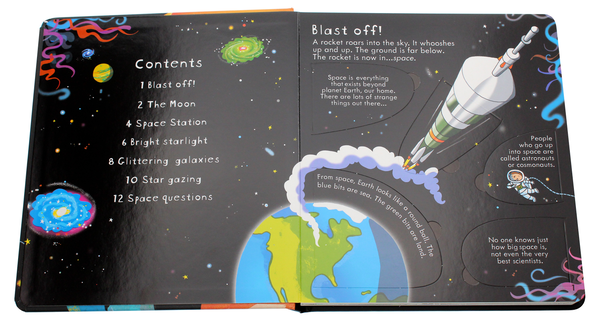 Contents
1 Blast off!
2 The Moon
4 Space Station
6 Bright starlight
8 Glittering galaxies
10 Star gazing
12 Space questions
Blast off!
A rocket roars into the sky. It whooshes
up and up. The ground is far below.
The rocket is now in...space.
Space is everything
that exists beyond
planet Earth, our home.
There are lots of strange
things out there...
People
who go up
into space are
called astronauts
or cosmonauts.
From space, Earth looks like a round ball. The
blue bits are sea. The green bits are land.
No one knows just
how big space is,
not even the very
best scientists.